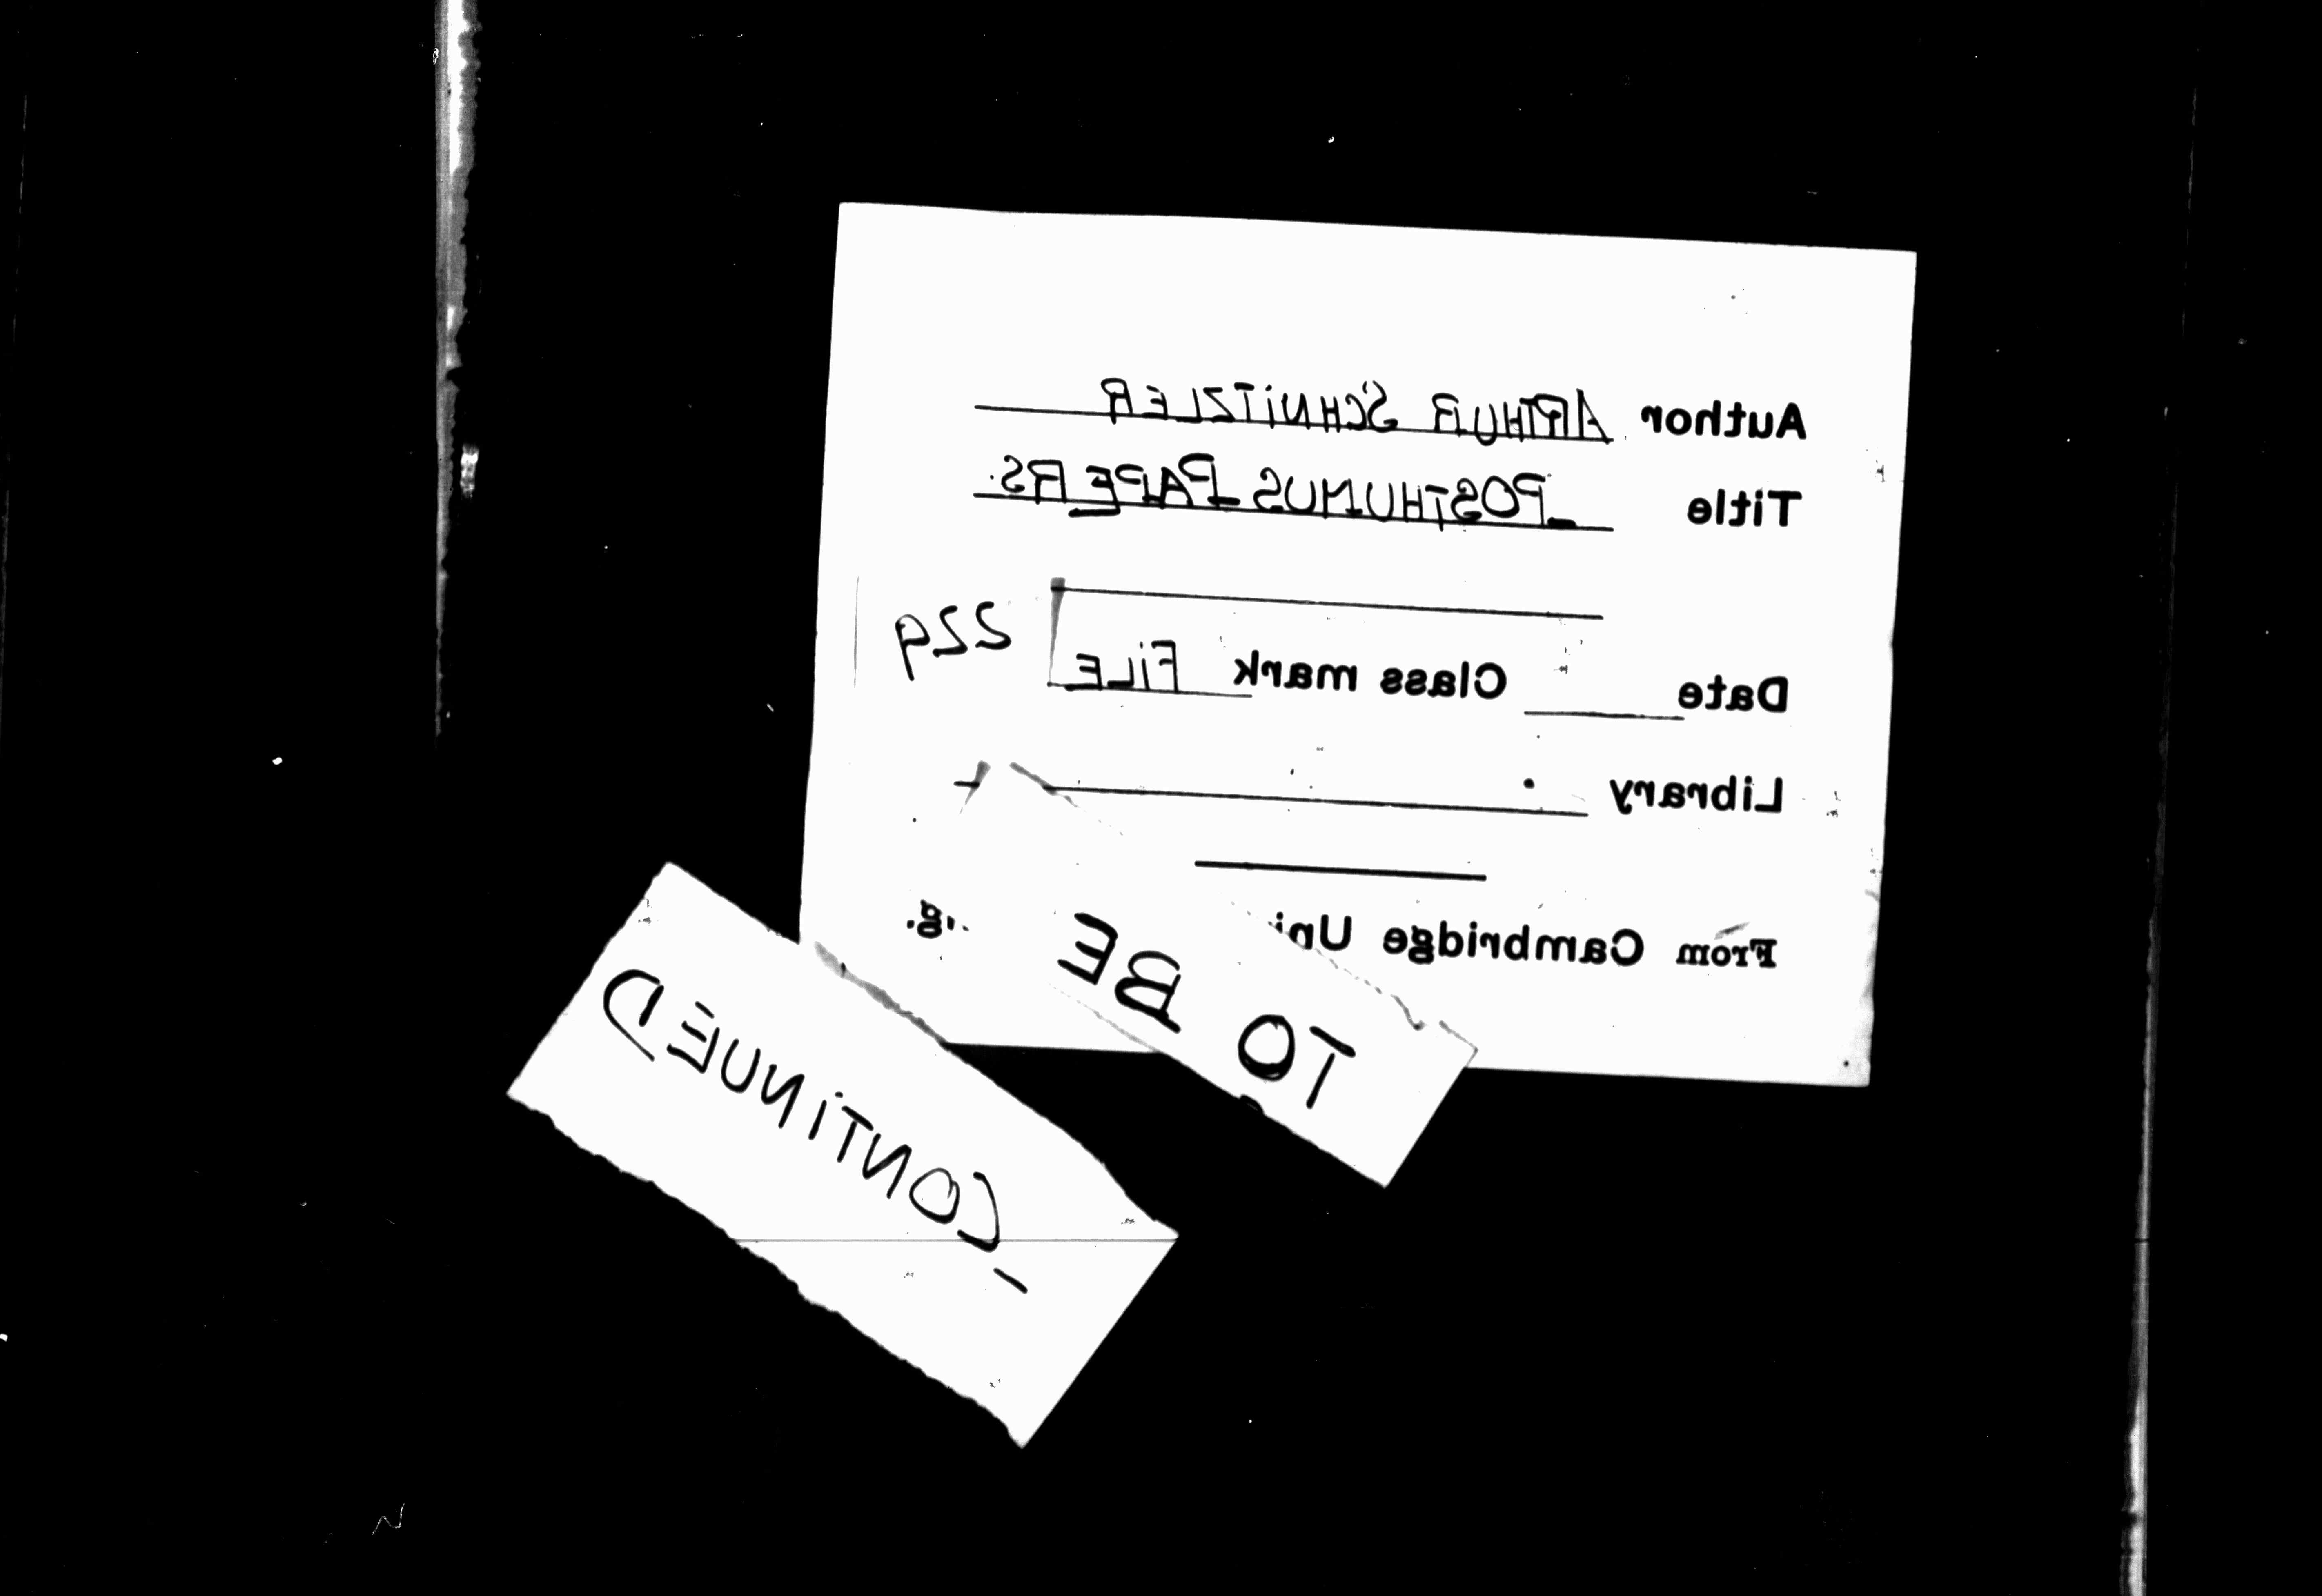 Author ARTHUR SCHNiTZLER
Title POSTHUMUS PAPERS.
Date Class mark FiLE 229
Library
From Cambridge
TO BE
- CONTiNUED